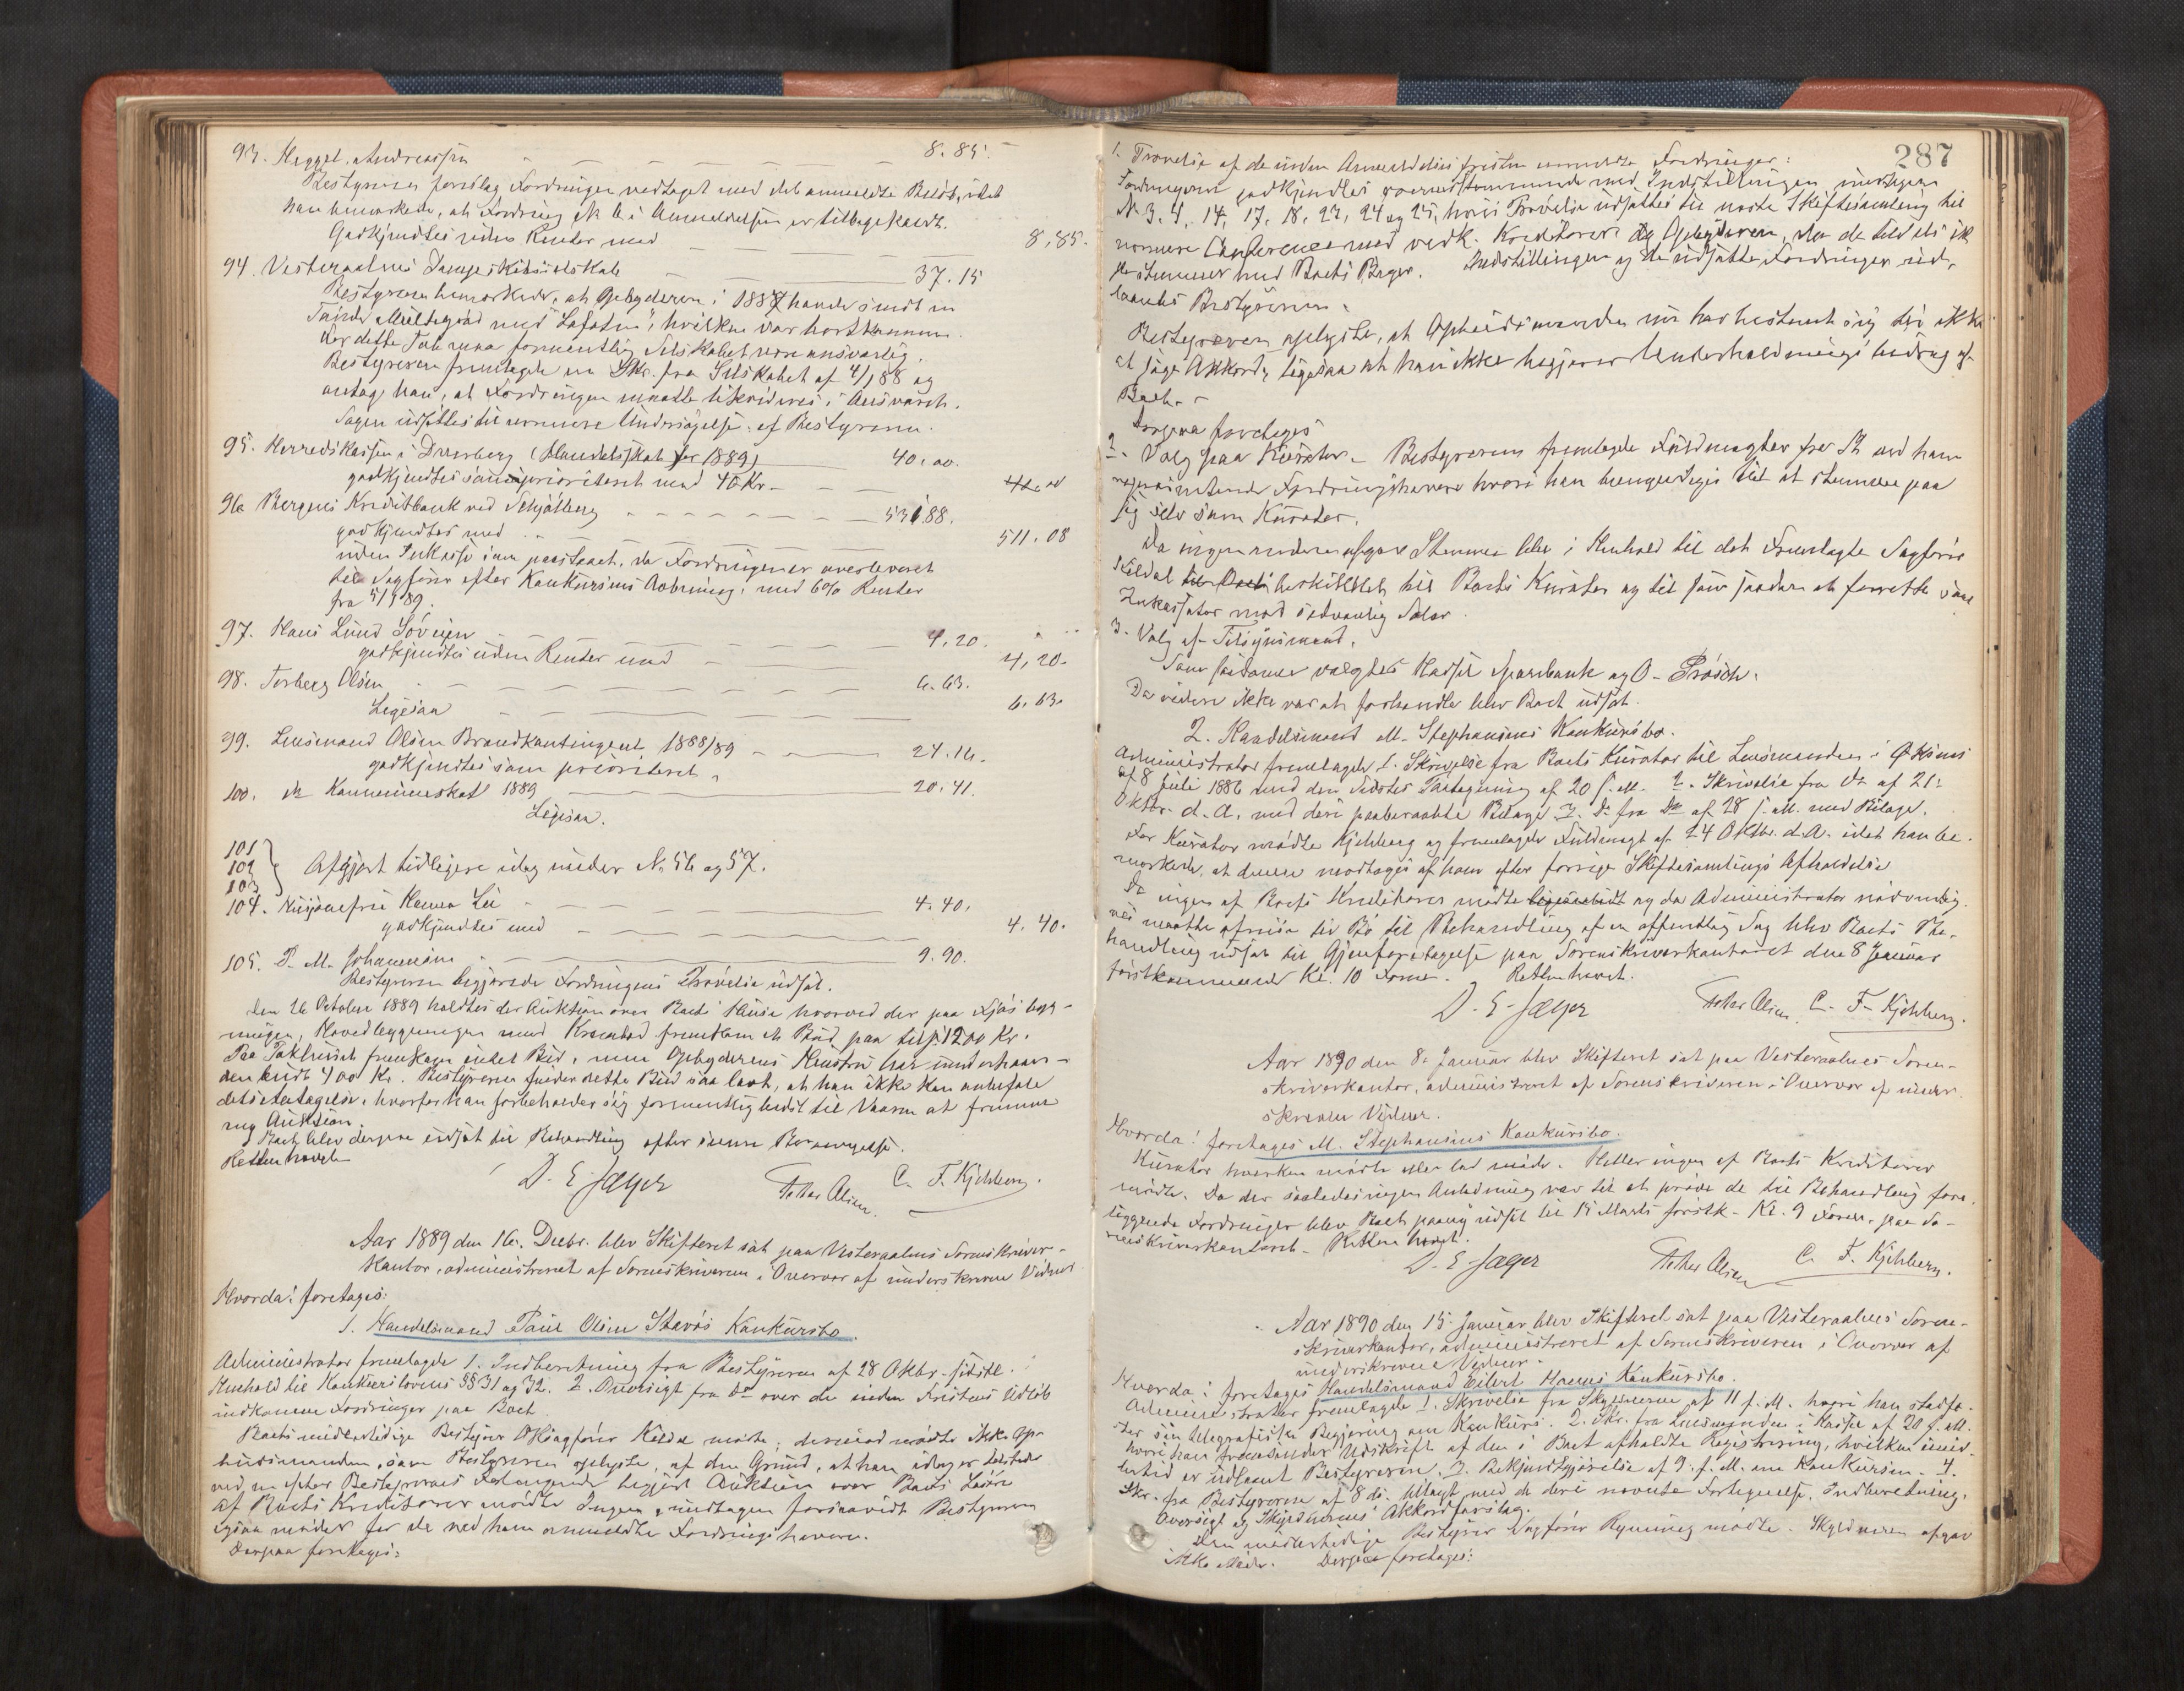 93. Andreassen — — — — — 8.85.
Bestyreren foreslog Fordringen vedtaget med det anmeldte Beløb, idet
han bemærkede, at Fordring No 6 i Anmeldelsen er tilbagekaldt.
Godkjendtes uden Renter med — — — 8,85.
94. Vesteraalens Dampskibsselskab — — — 37.15
Bestyreren bemærkede, at Opbyderen i 1887 havde sendt en
Tønde Multegrød med "Lofoten", hvilken var bortkommen.
For dette Tab maa formentlig Selskabet være ansvarlig.
Bestyreren fremlagde en Skr. fra Selskabet af 4/1 88 og
antog han, at Fordringen maatte likvideres i Ansvaret.
Sagen udsattes til nærmere Undersøgelse af Bestyreren.
95. Herredskassen i Dverberg (Handelsskat for 1889) 40.00.
godkjendtes som prioriteret med 40 Kr. — —
96. Bergens Kreditbank ved Schjøtberg — — — 531.88.
godkjendtes med — — — 511.08
uden Inkasso som paastaaet, da Fordringen er overleveret
til Sagfører efter Konkursens Aabning, med 6% Renter
fra 5/1 89.
97. Hans Lund — — — 4.20.
godkjendtes uden Renter med — — 4,20.
98. Torberg Olsen — — — 6.63.
Ligesaa — — — 6.63.
99. Lensmand Olsen Brandkontingent 1888/89 — — 24.16.
godkjendtes som prioriteret.
100. do Kommuneskat 1889 — — 20.41.
Ligesaa.
101
102
103 } Afgjort tidligere idag under No. 56 og 57.
104. Lie — — — 4.40.
godkjendtes med — — — 4.40.
105. P. M. Johannesen — — — 9.90.
Bestyreren begjærede Fordringens Prøvelse udsat.
Den 26 Oktober 1889 holdtes der Auktion over Boets Huse hvorved der paa Fjøsbyg-
ningen, Hovedbygningen med Krambod fremkom et Bud paa til 1200 Kr.
Paa fremkom intet Bud, men Opbyderens Hustru har underhaan-
den budt 400 Kr. Bestyreren finder dette Bud saa lavt, at han ikke kan anbefale
dets Antagelse, hvorfor han forbeholder sig formentlig til Vaaren at fremme
ny Auktion.
Boet blev dernæst udsat til Behandling efter
Retten hævet
D. E. Jæger Peter Olsen C. F. Kjehlberg.
Aar 1889 den 16. Decbr. blev Skifteret sat paa Vesteraalens Sorenskriver-
kontor, administreret af Sorenskriveren i Overvær af underskrevne Vidner.
Hvorda: foretages:
1. Handelsmand Paul Olsen Stavøs Konkursbo.
Administrator fremlagde 1. Indberetning fra Bestyreren af 28 Oktbr. sidstl.
Henhold til Konkurslovens §§ 31 og 32. 2. Oversigt fra Do over de inden Fristens Udløb
indkomne Fordringer paa Boet.
Boets midlertidige Bestyrer O.R.sagfører Kildal mødte; derimod mødte ikke Op-
budsmanden, som Bestyreren oplyste, af den Grund, at han idag er tilstede
ved en efter Bestyrerens Forlangende begjært Auktion over Boets Løsøre
Af Boets Kreditorer mødte Ingen, undtagen forsaavidt Bestyreren
ogsaa møder for de ved ham anmeldte Fordringshavere.
Derpaa foretoges:
287
1. Prøvelse af de inden Anmeldelsesfristen anmeldte Fordringer:
Fordringerne godkjendtes overensstemmende med Indstillingen undtagen
No 3. 4. 14, 17. 18. 23, 24 og 25, hvis Prøvelse udsattes til næste Skiftesamling til
nærmere Conference med vedk. Kreditorer og Opbyderen, da de tildels ik
ke stemmer med Boets Bøger. Indstillingen og de udsatte Fordringer ud-
laantes Bestyreren.
Bestyreren oplyste, at Opbudsmanden nu har bestemt sig til ikke
at søge Akkord, ligesaa at han ikke begjærer Underholdningsbidrag af
Boet.
Dernæst foretoges
2. Valg paa Kurator. Bestyreren fremlagde Fuldmagter fra de ved ham
repræsenterede Fordringshavere hvori han bemyndiges til at stemme paa
sig selv som Kurator.
Da ingen anden afgav Stemme blev i Henhold til det Fremlagte Sagfører
Kildal beskikket til Boets Kurator og til som saadan at forrette som
Inkassator mod sedvanlig Salær.
3. Valg af Tilsynsmænd.
Som saadanne valgtes Hadsel Sparebank og O. Prøsch.
Da videre ikke var at forhandle blev Boet udsat.
2. Handelsmand M. Stephansens Konkursbo.
Administrator fremlagde 1. Skrivelse fra Boets Kurator til Lensmanden i Øksnes
af 8 Juli 1886 med den Sidstes Paategning af 20 s. M. 2. Skrivelse fra Do af 21
Oktbr. d. A. med deri paaberaabte Bilage 3. Do fra Do af 28 s. M. med Bilage.
For Kurator mødte Kjehlberg og fremlagde Fuldmagt af 24 Oktbr. d.A. idet han be-
mærkede, at denne modtoges af ham efter forrige Skiftesamlings Afholdelse
Da ingen af Boets Kreditorer mødte og da Administrator nødvendig-
vis maatte afreise til Bø til Behandling af en offentlig Sag blev Boets Be-
handling udsat til Gjenforetagelse paa Sorenskriverkontoret den 8 Januar
førstkommende Kl. 10 Form. Retten hævet.
D. E. Jæger Peter Olsen C. F. Kjehlberg.
Aar 1890 den 8. Januar blev Skifteret sat paa Vesteraalens Soren-
skriverkontor, administreret af Sorenskriveren i Overvær af under-
skrevne Vidner.
Hvorda: foretages M. Stephansens Konkursbo.
Kurator hverken mødte eller lod møde. Heller ingen af Boets Kreditorer
mødte. Da der saaledes ingen Anledning var til at prøve de til Behandling fore-
liggende Fordringer blev Boet paany udsat til 15 Marts førstk. Kl. 9 Form. paa So-
renskriverkontoret. Retten hævet.
D. E. Jæger Peter Olsen C. F. Kjehlberg.
Aar 1890 den 15 Januar blev Skifteret sat paa Vesteraalens Soren-
skriverkontor, administreret af Sorenskriveren i Overvær af
underskrevne Vidner.
Hvorda: foretages Handelsmand Eilert Konkursbo.
Administrator fremlagde 1. Skrivelse fra Skyldneren af 11 f. M. hvori han stadfæ-
ster sin telegrafiske Begjæring om Konkurs. 2. Skr. fra Lensmanden i Hadsel af 20 f. M.
hvori han fremsender Udskrift af den i Boet afholdte Registrering, hvilken imid-
lertid er udlaant Bestyreren. 3. Bekjendtgjørelse af 9. f. M. om Konkursen. 4.
Skr. fra Bestyreren af 8 ds. ledsaget med de deri nævnte Fortegnelse, Indberetning,
Oversigt og Skyldnerens Akkordforslag.
Den midlertidige Bestyrer Sagfører Rynning mødte. Skyldneren afgav
ikke Møde. Derpaa foretages: